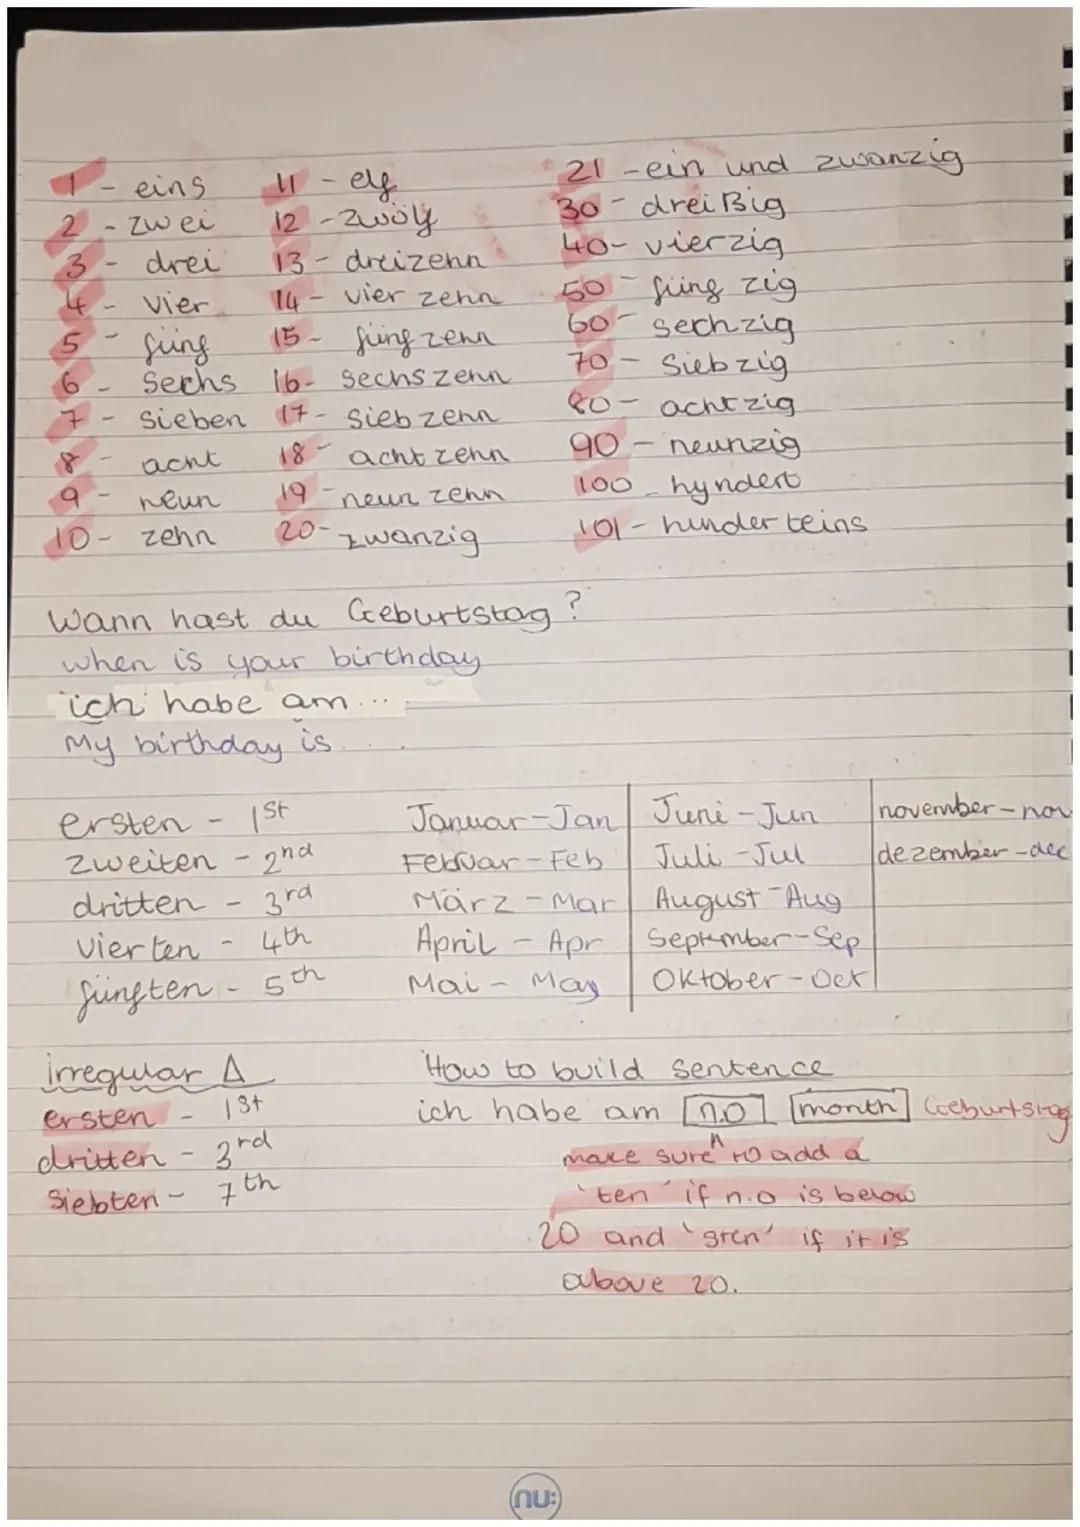 1 - eins 11 - elf 21 - ein und zwanzig
2 - zwei 12 - zwölf 30 - dreißig
3 - drei 13 - dreizehn 40 - vierzig
4 - vier 14 - vier zehn 50 - fünf zig
5 - fünf 15 - fünf zehn 60 - sechzig
6 - sechs 16 - sechszehn 70 - siebzig
7 - sieben 17 - siebzehn 80 - achtzig
8 - acht 18 - achtzehn 90 - neunzig
9 - neun 19 - neun zehn 100 - hyndert
10 - zehn 20 - zwanzig 101 - hunderteins
Wann hast du Geburtstag?
when is your birthday
ich habe am ...
My birthday is ...
ersten - 1st Januar - Jan Juni - Jun november - nov
zweiten - 2nd Februar - Feb Juli - Jul dezember - dec
dritten - 3rd März - Mar August - Aug
vierten - 4th April - Apr September - Sep
fünften - 5th Mai - May Oktober - Oct
irregular Δ How to build sentence
ersten - 1st ich habe am [n.o] [month] Geburtstag
dritten - 3rd make sure ^ to add a
siebten - 7th 'ten' if n.o is below
20 and 'sten' if it is
above 20.
nu: